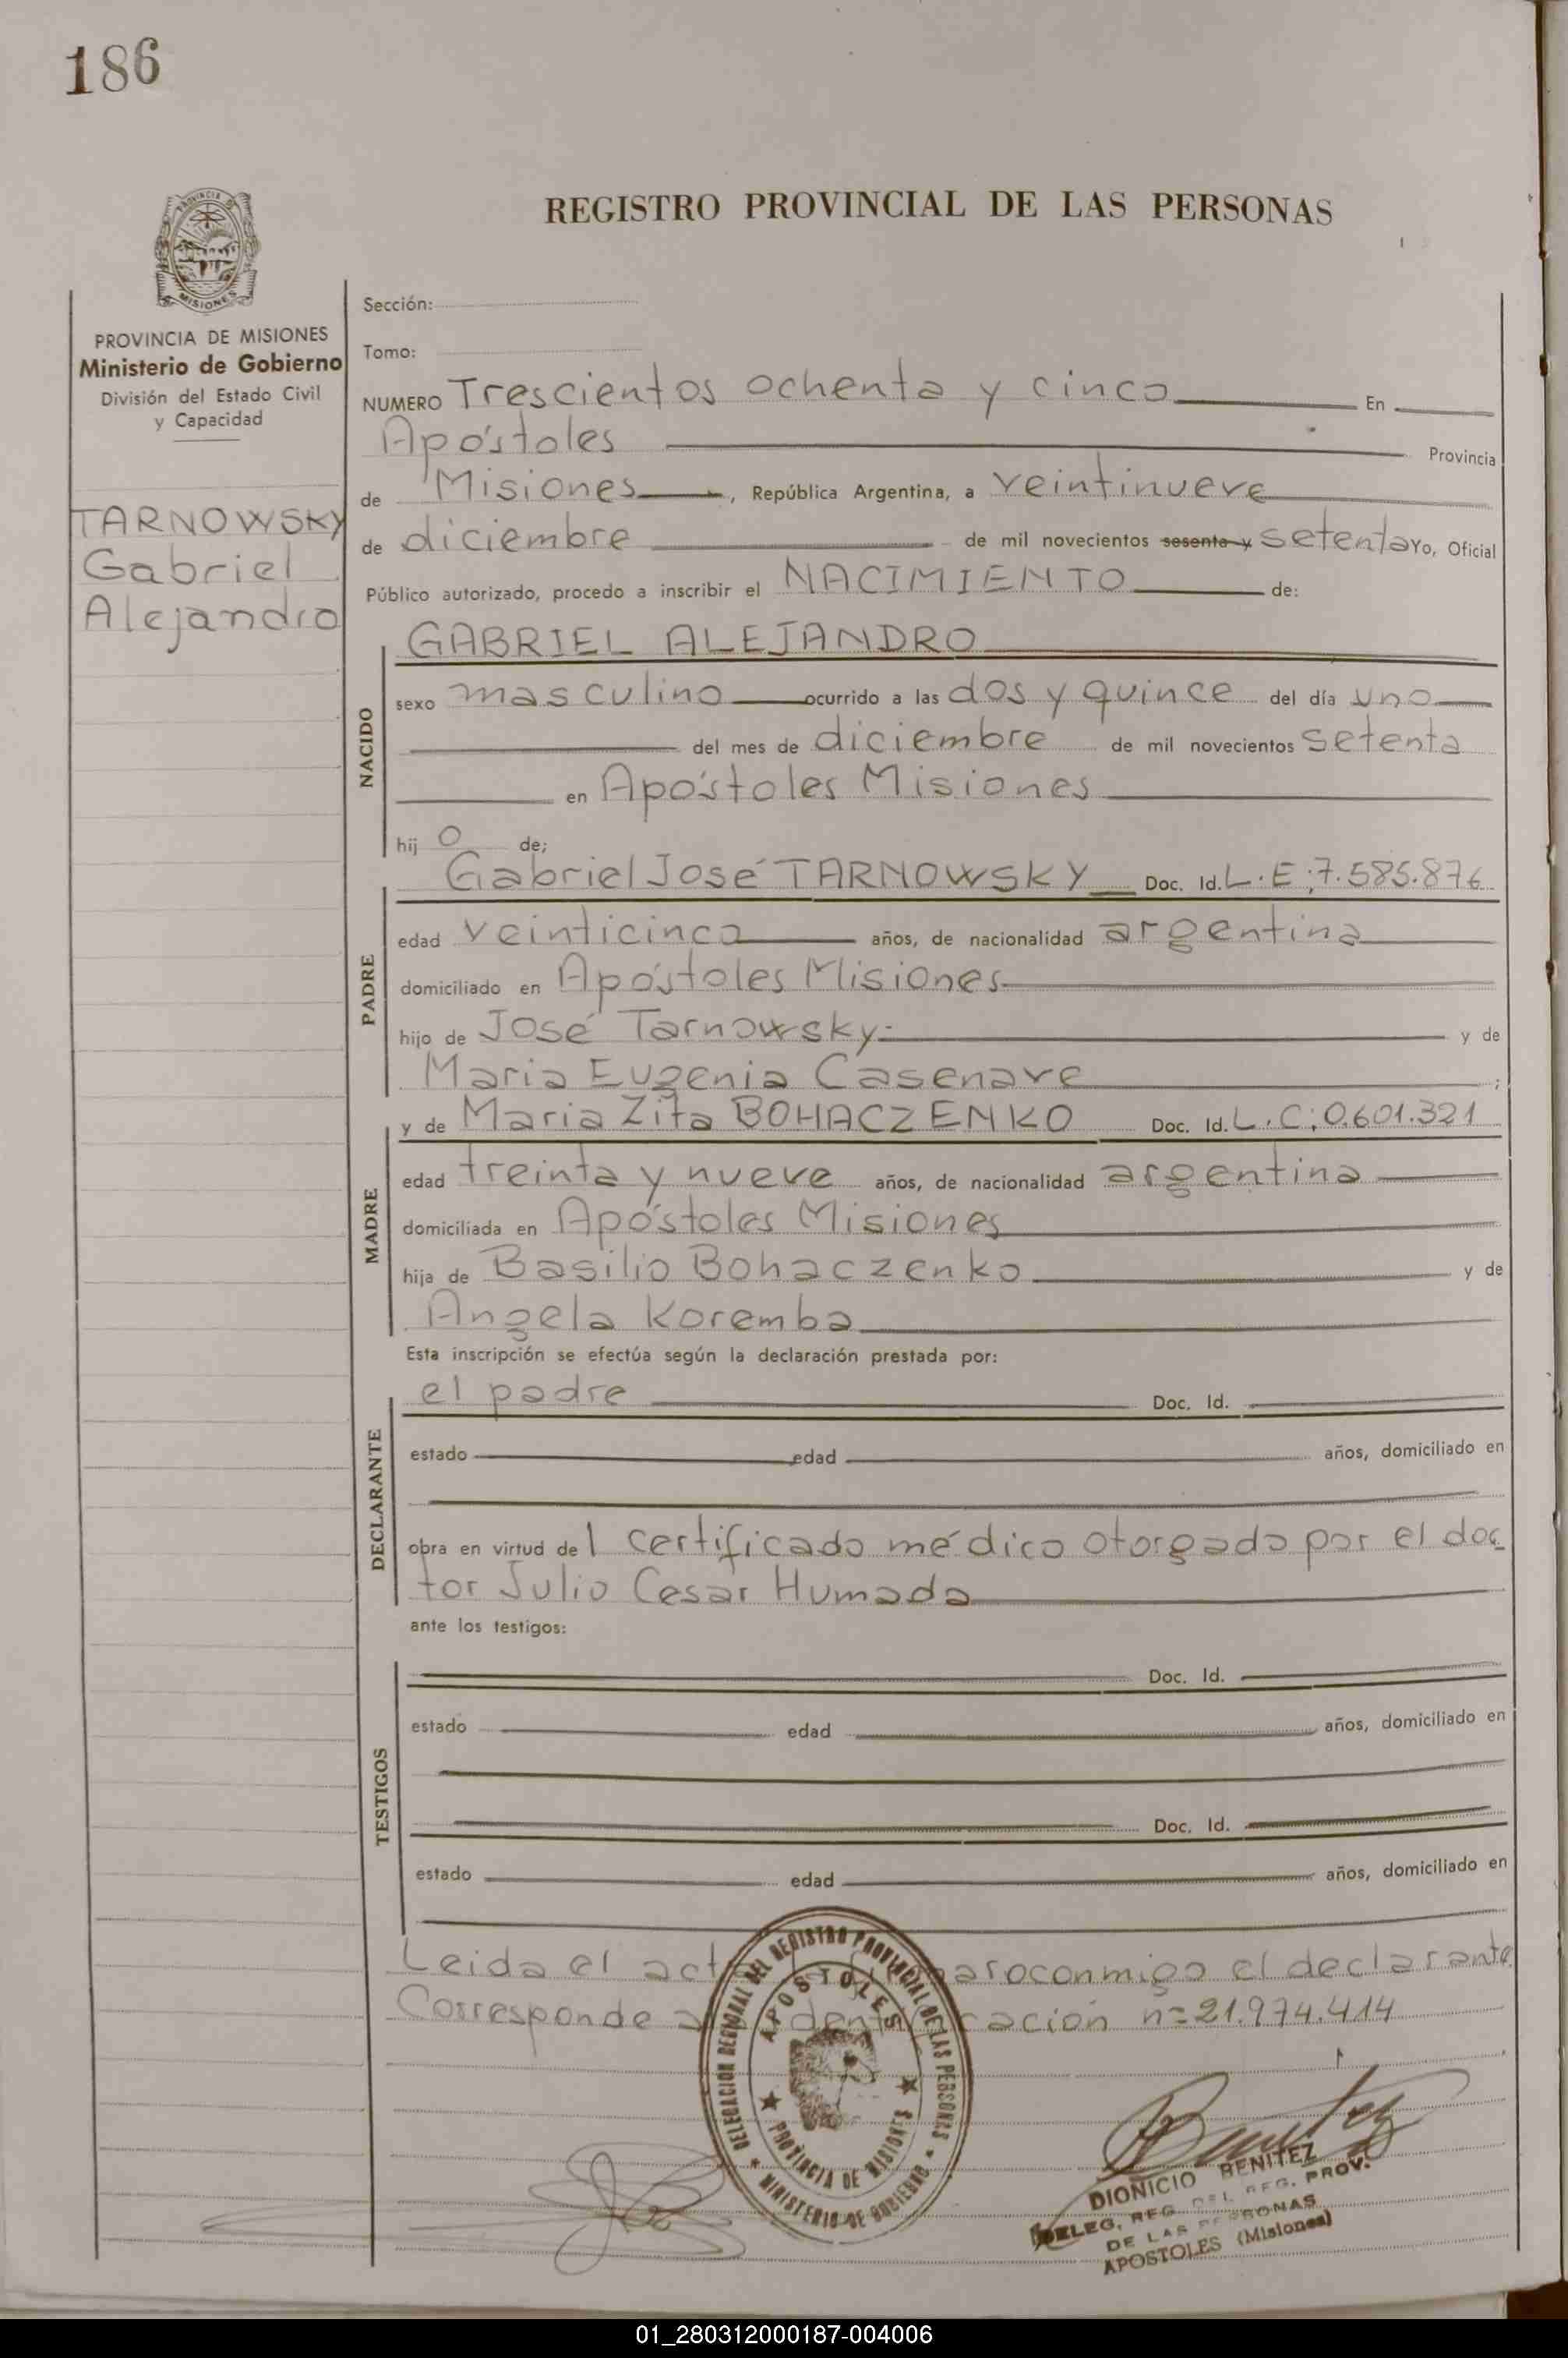 186
REGISTRO PROVINCIAL DE LAS PERSONAS
PROVINCIA DE
MISIONES
PROVINCIA DE MISIONES
Ministerio de Gobierno
División del Estado Civil
y Capacidad
TARNOWSKY
Gabriel
Alejandro
Sección:
Tomo:
NUMERO Trescientos ochenta y cinco En
Apóstoles Provincia
de Misiones, República Argentina, a veintinueve
de diciembre de mil novecientos sesenta y setenta Yo, Oficial
Público autorizado, procedo a inscribir el NACIMIENTO de:
NACIDO
GABRIEL ALEJANDRO
sexo masculino ocurrido a las dos y quince del día uno
del mes de diciembre de mil novecientos setenta
en Apóstoles Misiones
hij o de;
PADRE
Gabriel José TARNOWSKY Doc. Id. L.E;7.585.876
edad veinticinco años, de nacionalidad argentina
domiciliado en Apóstoles Misiones
hijo de José Tarnowsky y de
Maria Eugenia Casenave;
MADRE
y de Maria Zita BOHACZENKO Doc. Id. L.C;0.601.321
edad treinta y nueve años, de nacionalidad argentina
domiciliada en Apóstoles Misiones
hija de Basilio Bohaczenko y de
Angela Koremba
Esta inscripción se efectúa según la declaración prestada por:
DECLARANTE
el padre Doc. Id.
estado edad años, domiciliado en
obra en virtud del certificado médico otorgado por el doc
tor Julio Cesar Humada
ante los testigos:
TESTIGOS
Doc. Id.
estado edad años, domiciliado en
Doc. Id.
estado edad años, domiciliado en
Leida el conmigo el declarante
Corresponde n=21.974.414
DELEGACIÓN REGIONAL DEL REGISTRO PROVINCIAL DE LAS PERSONAS
MINISTERIO DE GOBIERNO
APOSTOLES
PROVINCIA DE MISIONES
Benitez
DIONICIO BENITEZ
DELEG. REG. DEL REG. PROV.
DE LAS PERSONAS
APOSTOLES (Misiones)
01_280312000187-004006